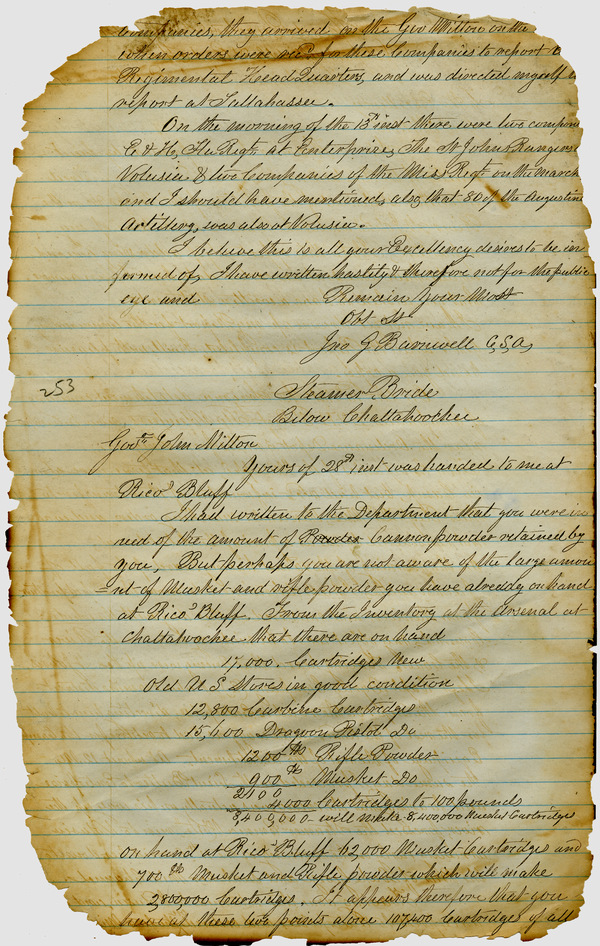 Companies, they arrived on the Gov Milton on the
when orders were recd for these Companies to report to
Regimental Head Quarters, and was directed myself to
report at Tallahassee.
On the morning of the 13th inst there were two compan
E & H, Fla Regt, at Enterprise, The St Johns Rangers
Volusia & two Companies of the Miss Regt on the march
and I should have mentioned, also, that 80 of the Augustine
Artillery, was also at Volusia.
I believe this is all your Excellency desires to be in
formed of, I have written hastily & therefore not for the public
eye and Remain Your Most
Obt St
Jno G Barnwell C,S,A,
253
Steamer Bride
Below Chattahoochee
Govr John Milton
Yours of 28th inst was handed to me at
Rico's Bluff
I had written to the Department that you were in
need of the amount of Powder Cannon powder retained by
you, But perhaps you are not aware of the large amou
=nt of Musket and rifle powder you have already on hand
at Rico's Bluff. From the Inventory at the Arsenal at
Chattahoochee that there are on hand
17,000. Cartridges New
Old U S Stores in good condition
12,800 Carbine Cartridges
15,600 Dragoon Pistol Do
1200 lbs Rifle Powder
900 lbs Musket Do
2100
4000 Cartridges to 100 pounds
8,400,000 - will make 8,400,000 Musket Cartridges
on hand at Rico's Bluff 62,000 Musket Cartridges and
700 lbs Musket and Rifle powder which will make
2,800,000 Cartridges. It appears therefore that you
have at these two points alone 107400 Cartridges of all